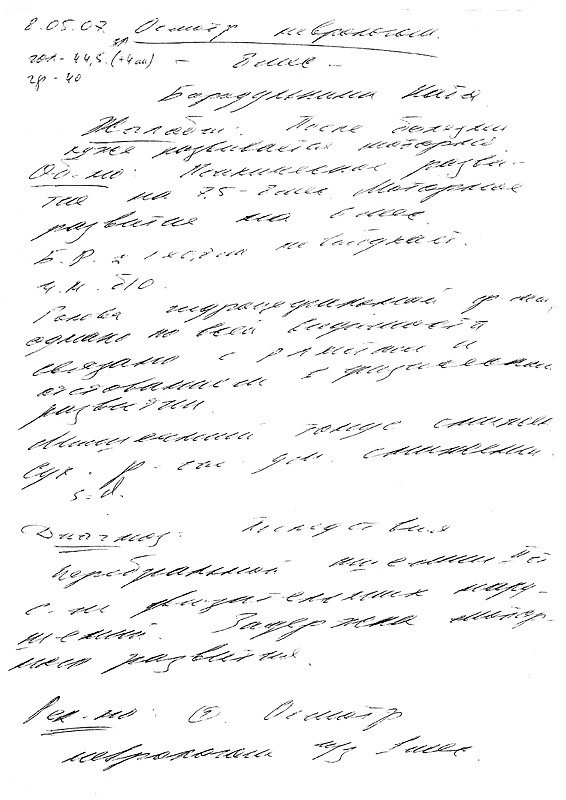 8.05.07. Осмотр неврологом.
гол - 44,5 (+4 см) за - 8 мес -
гр - 40
Катя
Жалобы: После болезни
хуже развивается моторно.
Об-но: Психическое разви-
тие на 7,5 - 8 мес. Моторное
развитие на 6 мес.
Б.Р. 1 х 0,8 см не выбухает.
Ч.Н. б/о
Голова гидроцефальной ф-мы,
однако по всей видимости
связано с рахитом и
отставанием в физическом
развитии.
Мышечный тонус снижен.
Сух. р-сы снижены.
s=d.
Диагноз: Последствия
церебральной ишемии II ст
с-м двигательных нару-
шений. Задержка мотор-
ного развития.
Рек-но: Осмотр
неврологом ч/з 1 мес.